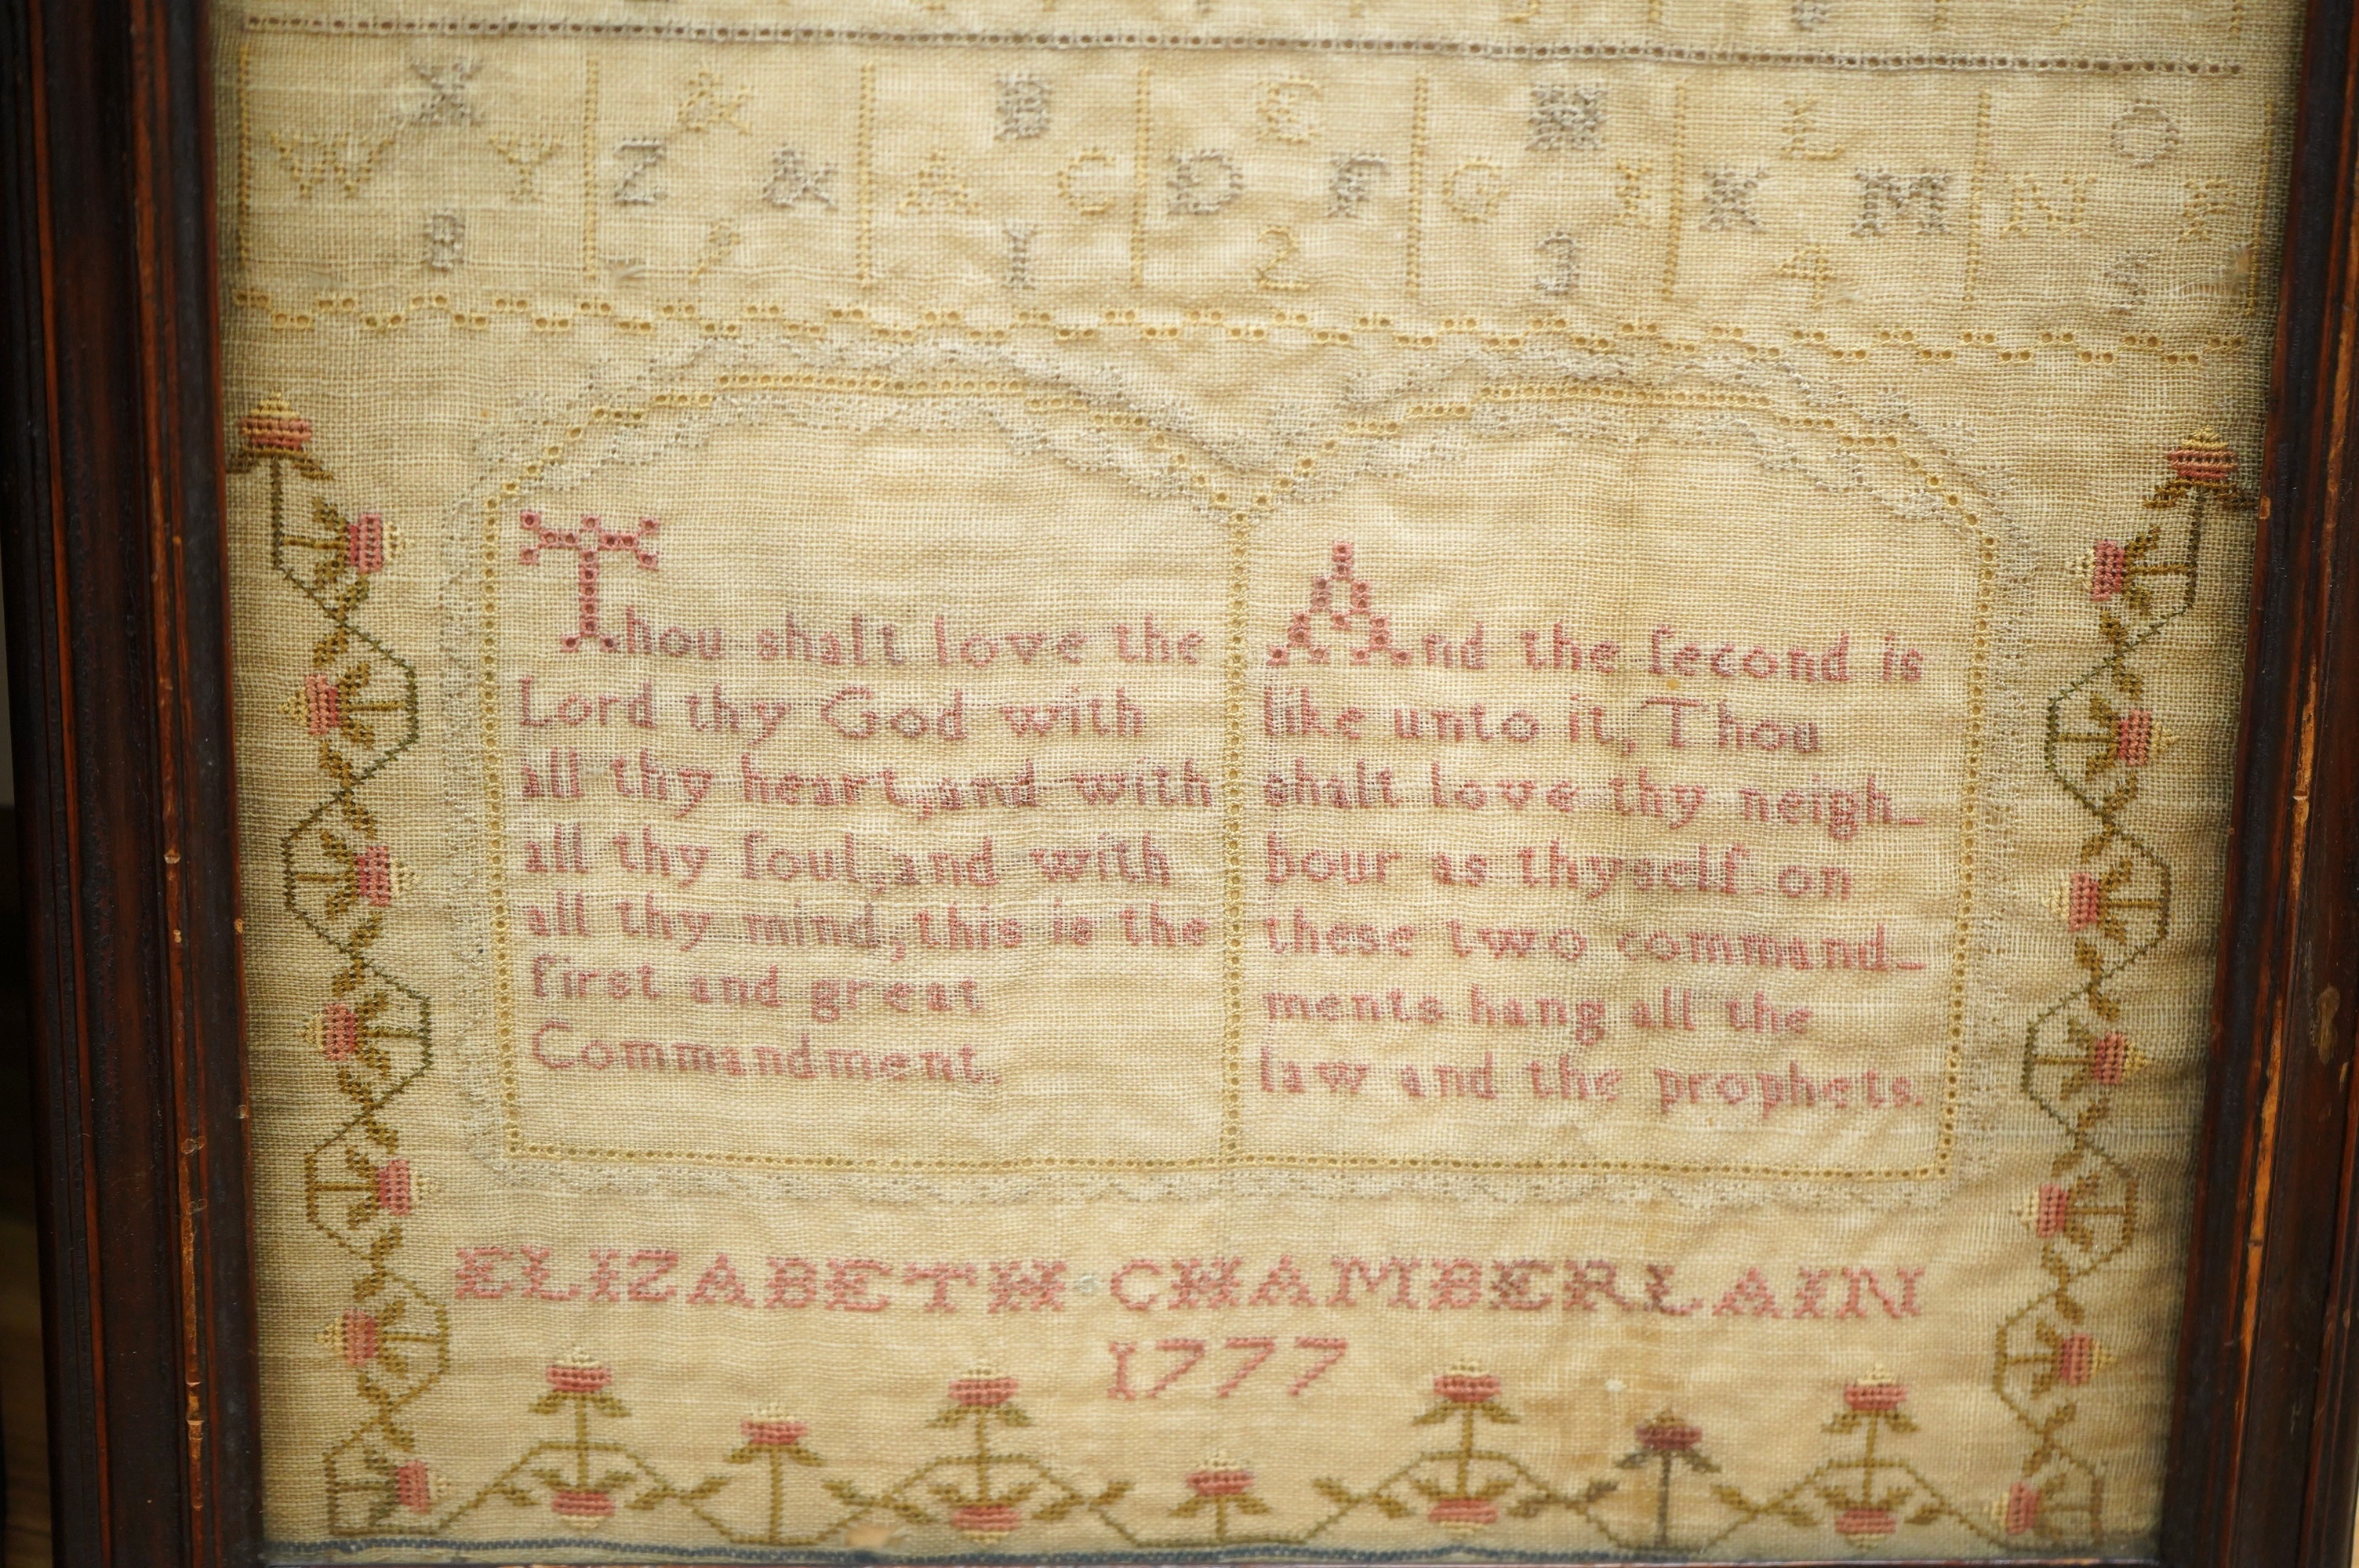 X & B E H L O
W Y Z & A C D F G I K M N P
8 9 1 2 3 4 5
Thou shalt love the
Lord thy God with
all thy heart, and with
all thy ſoul, and with
all thy mind, this is the
first and great
Commandment.
And the ſecond is
like unto it, Thou
shalt love thy neigh-
bour as thyself-on
these two command-
ments hang all the
law and the prophets.
ELIZABETH CHAMBERLAIN
1777